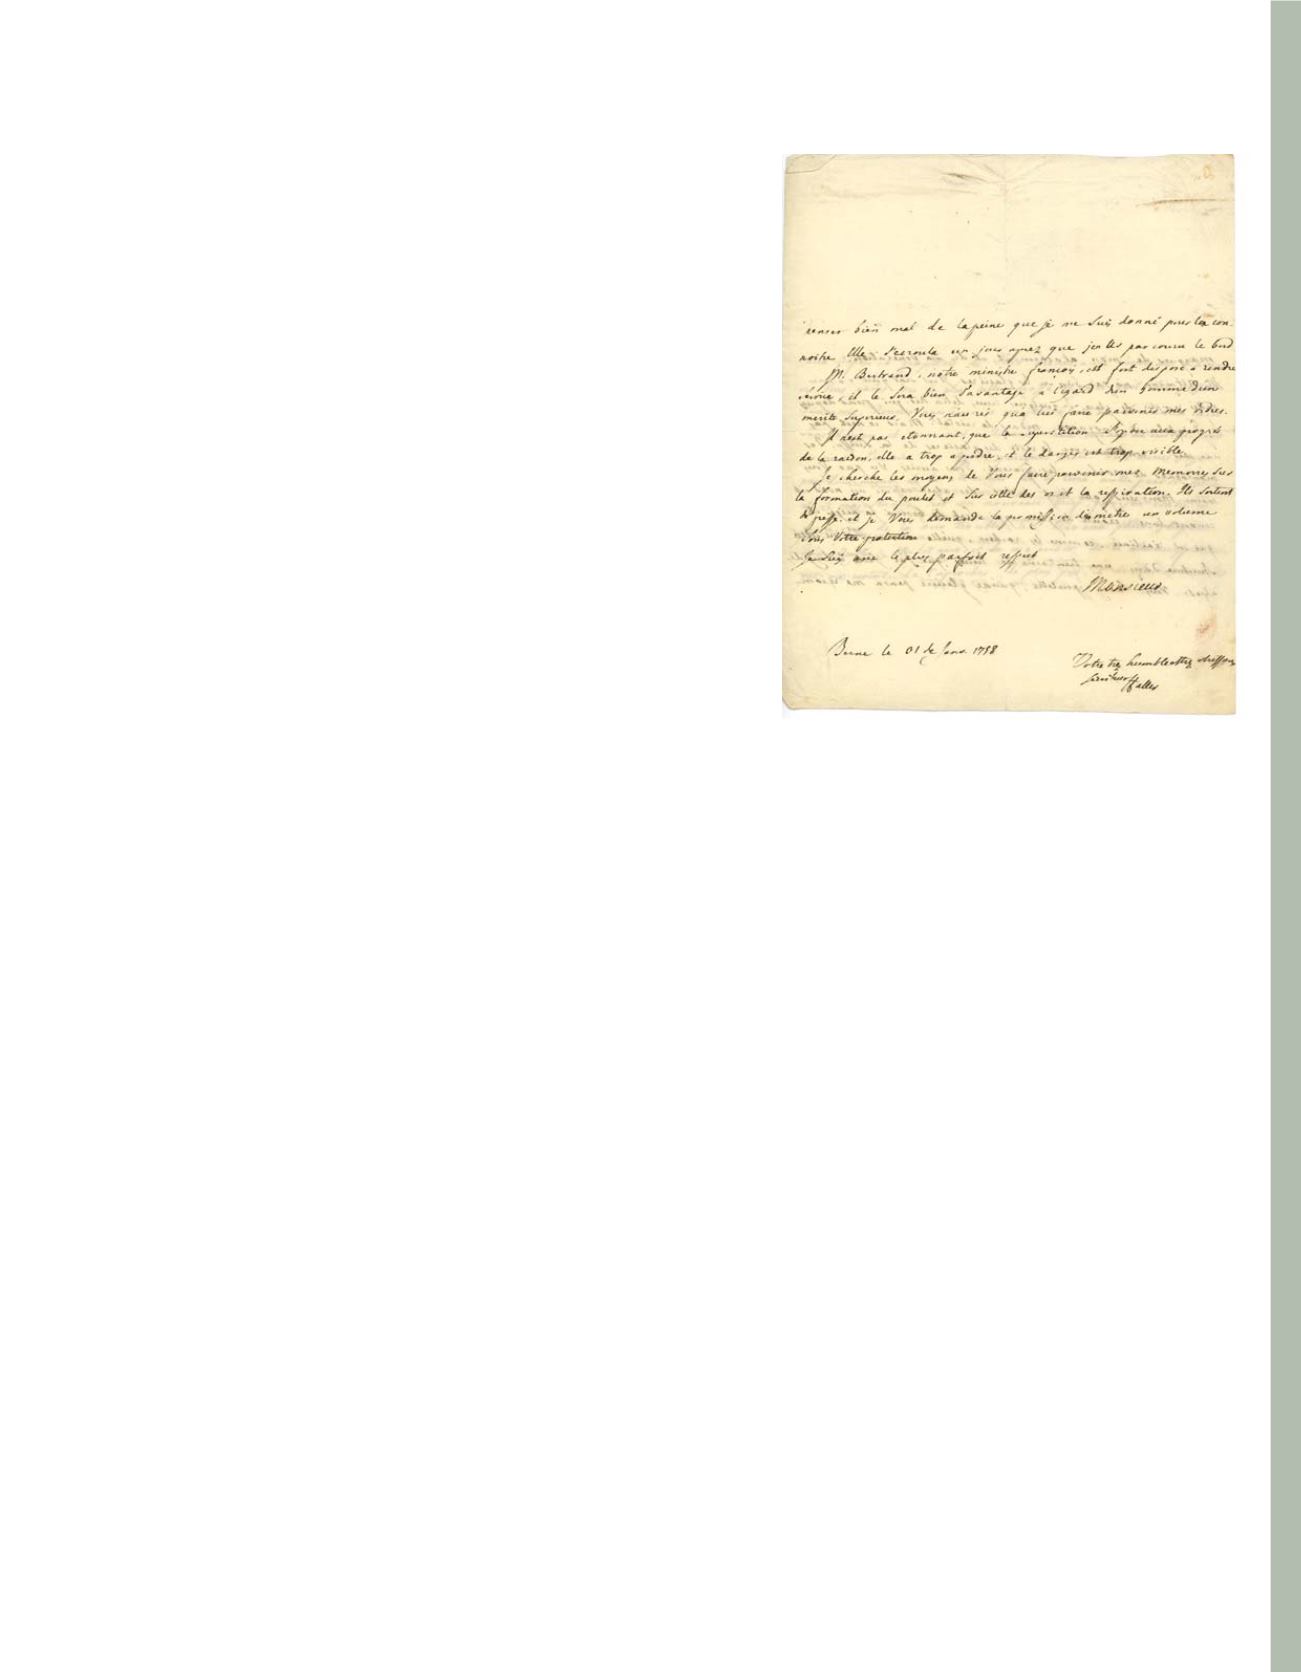 bien mal de la peine que je me suis donné pour la con-
noitre Elle s'ecroula un jour aprez que j'en eus parcouru le bord
M. Bertrand, notre ministre françois, est fort dispose a rendre
service, et le sera bien d'avantage a l'egard d'un homme d'un
merite superieur. Vous n'aurez qu'a lui faire parvenir mes ordres.
Il n'est pas etonnant, que la superstition s'oppose aux progrés
de la raison, elle a trop a perdre, et le danger est trop visible.
Je cherche les moyens de Vous faire parvenir mes Memoires sur
la formation du poulet et sur celle des os et la respiration. Ils sortent
de presse, et je Vous demande la permission d'en metre un volume
sous Votre protection
Je suis avec le plus parfait respect
Monsieur
Berne le 01 de Janv. 1758
Votre trez humble et trez
serviteur Haller